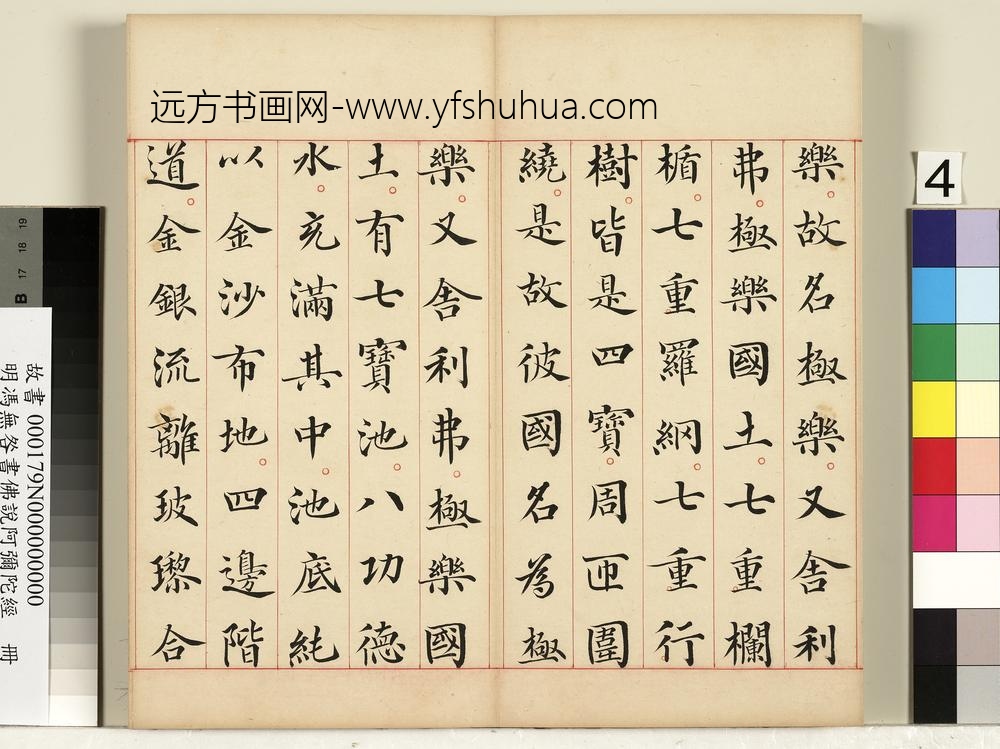 远方书画网-www.yfshuhua.com
樂。故名極樂。又舍利
弗。極樂國土。七重欄
楯。七重羅網。七重行
樹。皆是四寶。周匝圍
繞。是故彼國名為極
樂。又舍利弗。極樂國
土。有七寶池。八功德
水。充滿其中。池底純
以金沙布地。四邊階
道。金銀流離玻瓈合
4
19
18
17
B
故書 000179N000000000
明馮無咎書佛說阿彌陀經 冊